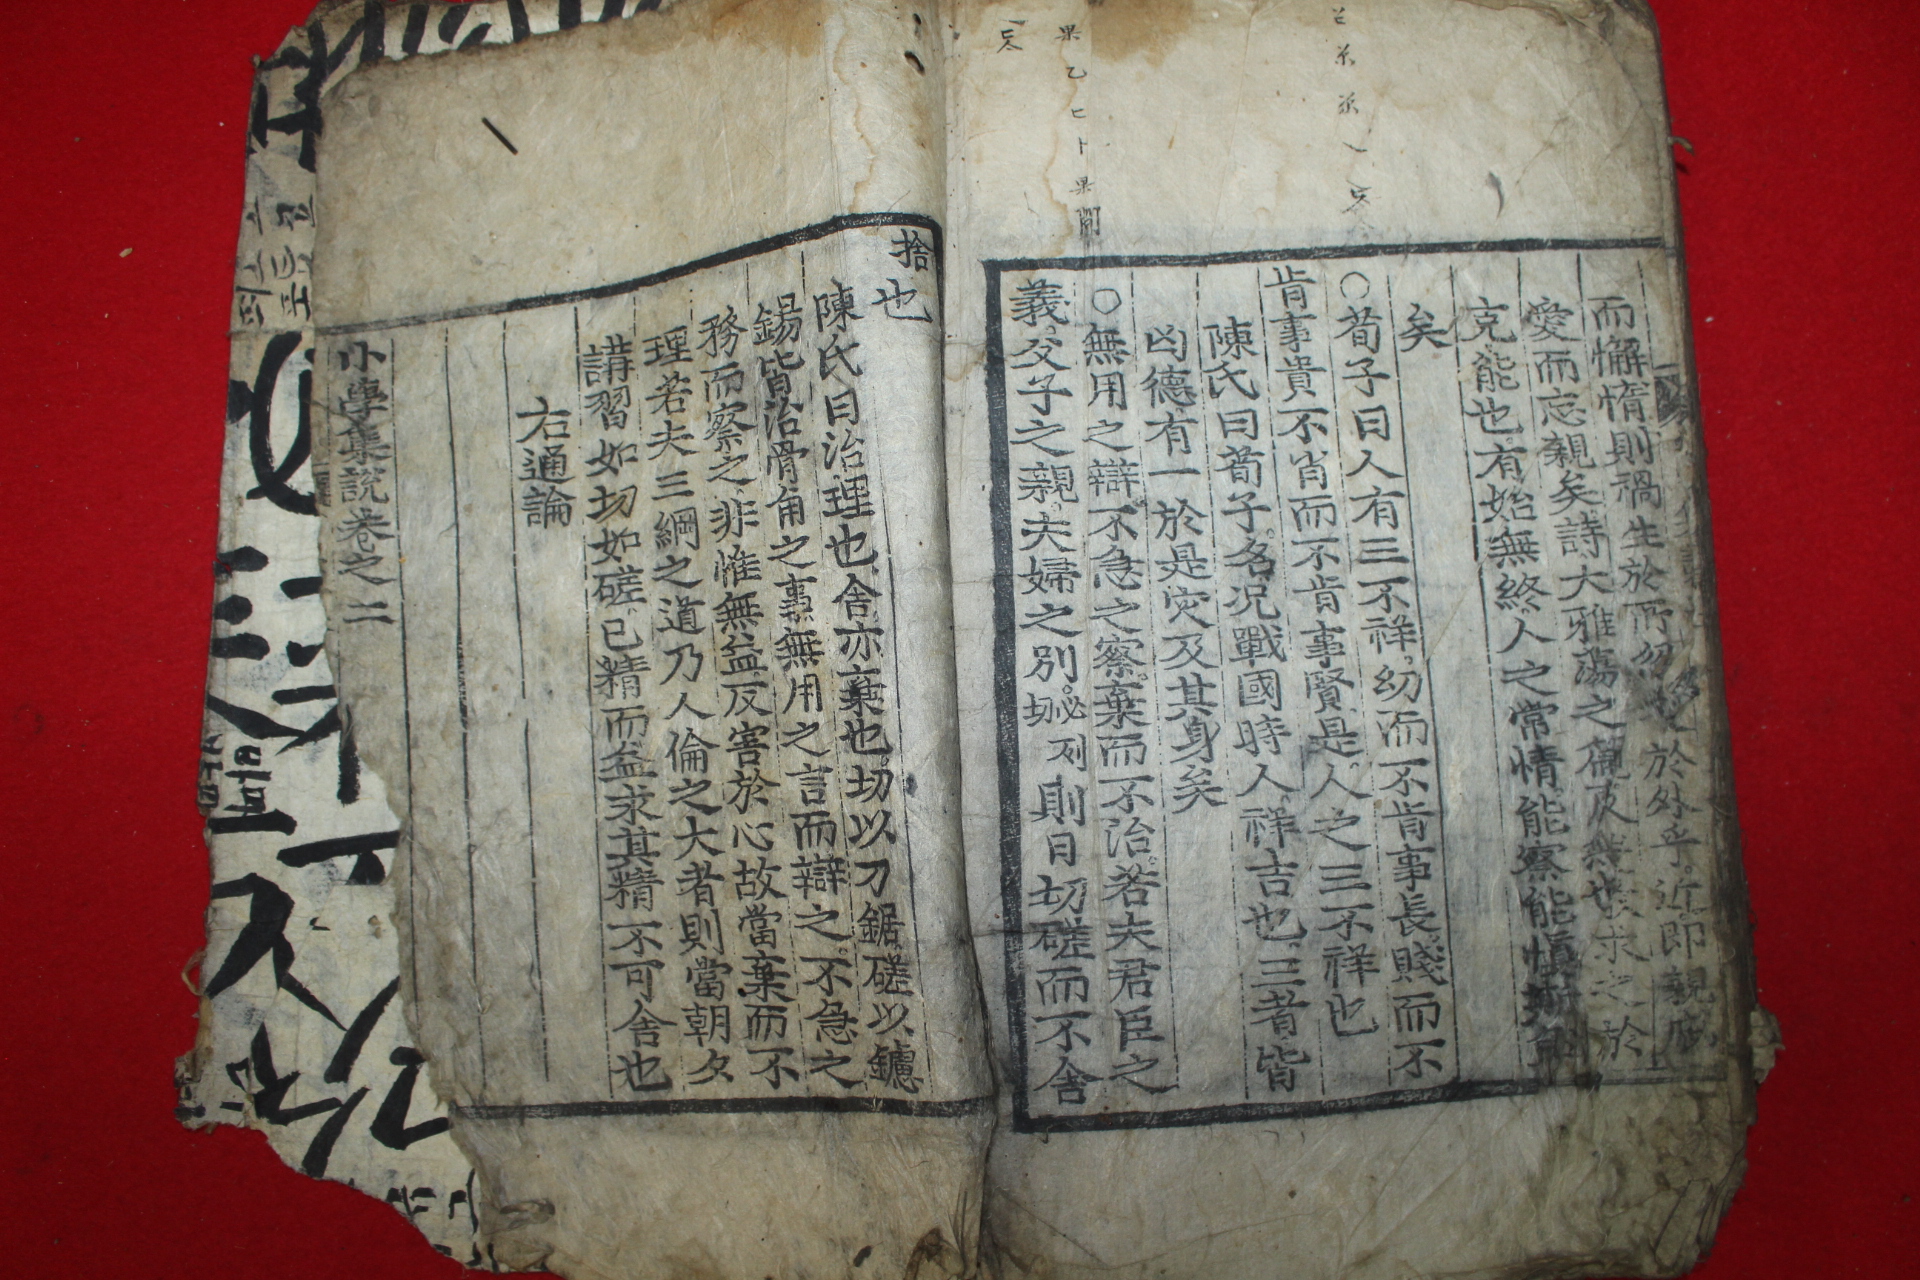 而懈惰則禍生於所忽 於外乎近即親
愛而忘親矣詩大雅蕩之篇 求之於
克能也有始無終人之常情能察能愼斯
矣
○荀子曰人有三不祥幼而不肯事長賤而不
肯事貴不肖而不肯事賢是人之三不祥也
陳氏曰荀子名况戰國時人祥吉也三者皆
凶德有一於是灾及其身矣
○無用之辯不急之察棄而不治若夫君臣之
義父子之親夫婦之別必列切則日切磋而不舍
捨
也
陳氏曰治理也舍亦棄也切以刀鋸磋以鑢
鍚皆治骨角之事無用之言而辯之不急之
務而察之非惟無益反害於心故當棄而不
理若夫三綱之道乃人倫之大者則當朝夕
講習如切如磋已精而益求其精不可舍也
右通論
小學集說卷之二